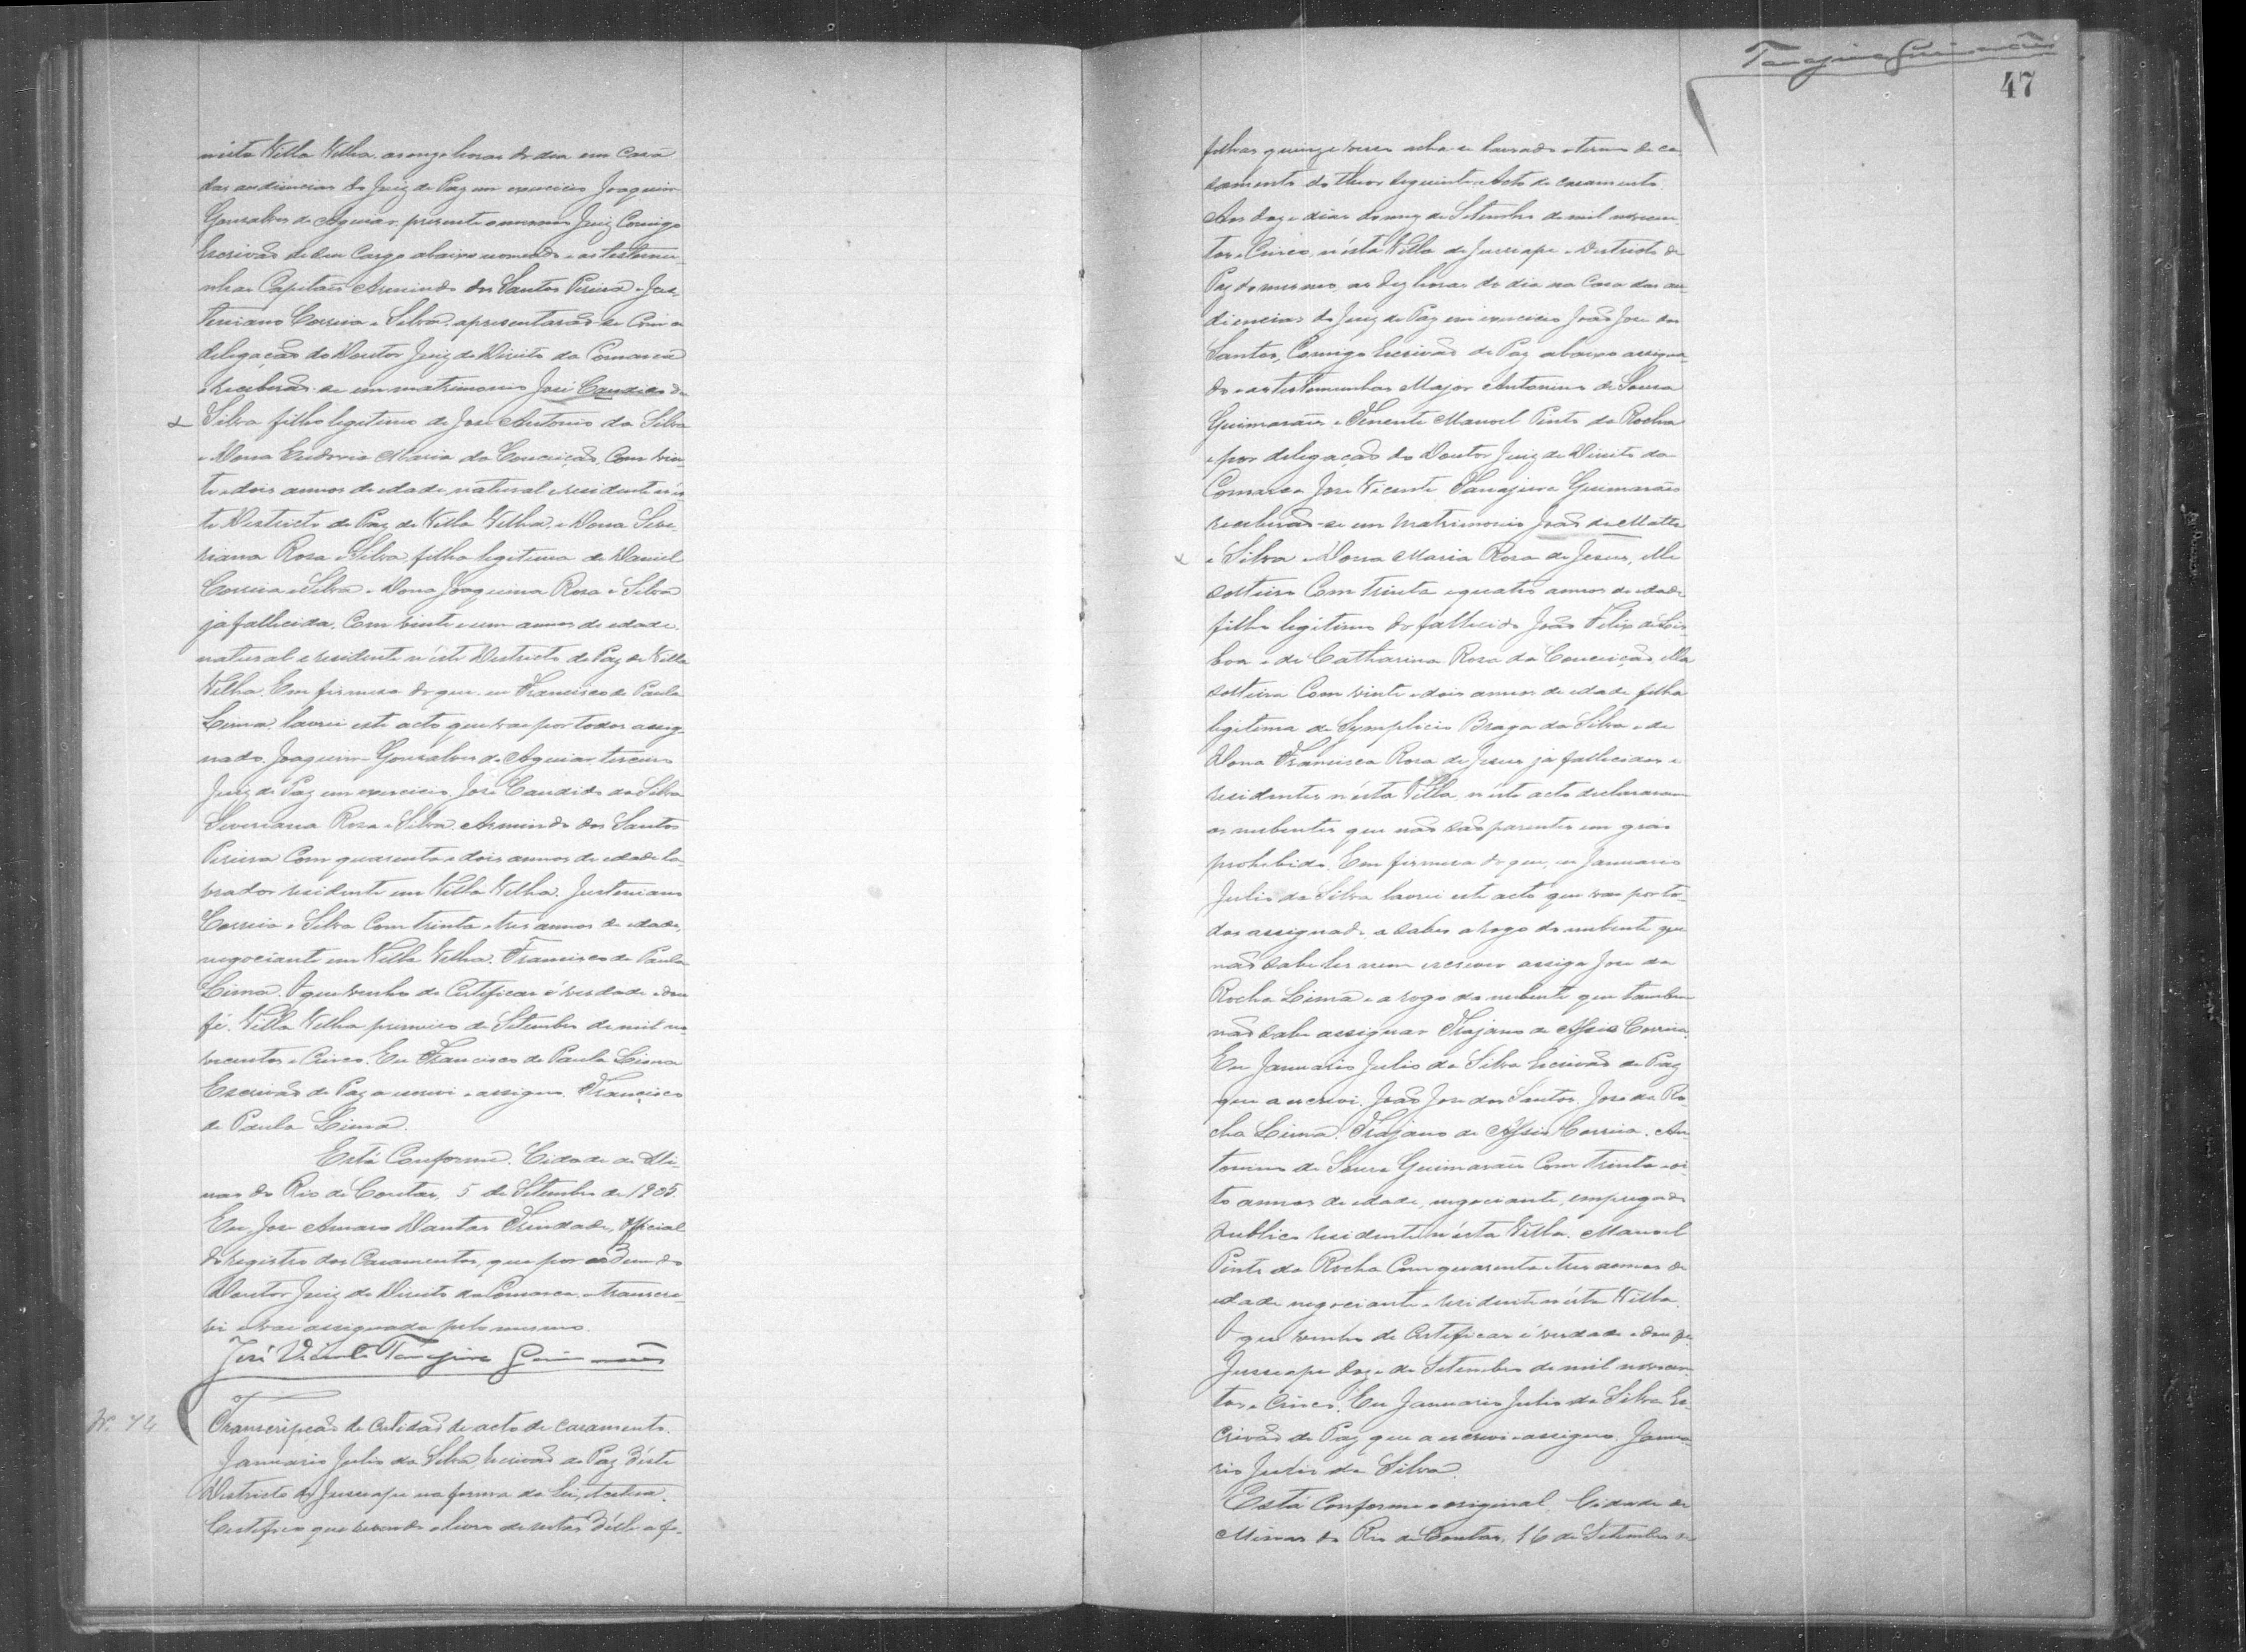 nésta Villa Velha, as onze horas do dia em casa
das audiencias do Juiz de Paz em exercicio Joaquim
Gonsalves de Aguiar, presente o mesmo Juiz Comigo
Escrivão de seu Cargo abaixo nomeado e as testemu-
nhas Capitão Armindo dos Santos Pereira e Jus-
teniano Correia e Silva, apresentarão-se Com a
delegação do Doutor Juiz de Direito da Comarca
e receberão-se em matrimonio José Candido da
Silva filho legitimo de José Antonio da Silva
e Dona Eudovia Maria da Conceição, Com vin-
te e dois annos de edade, natural e residente nés-
te Districto de Paz de Villa Velha, e Dona Seve-
riana Rosa e Silva, filha legitima de Daniel
Correia e Silva e Dona Joaquina Rosa e Silva
já fallecida, Com vinte e um annos de edade,
natural e residente n'éste Districto de Paz de Villa
Velha. Em firmesa do que, eu Francisco de Paula
Lima, lavrei este acto que vae por todos assig-
nado. Joaquim Gonsalves de Aguiar, terceiro
Juiz de Paz em exercicio, José Candido da Silva
Severiana Rosa e Silva. Armindo dos Santos
Pereira Com quarenta e dois annos de edade la-
vrador residente em Villa Velha. Justeniano
Correia e Silva Com trinta e tres annos de edade,
negociante em Villa Velha. Francisco de Paula
Lima. O que venho de Certificar é verdade e dou
fé. Villa Velha primeiro de Setembro de mil no-
vecentos e Cinco. Eu Francisco de Paula Lima
Escrivão de Paz a escrevi e assigno. Francisco
de Paula Lima.
Está Conforme. Cidade de Mi-
nas do Rio de Contas, 5 de Setembro de 1905.
Eu, José Amaro Dantas Trindade, Official
do registro dos Casamentos, que por ordem do
Doutor Juiz de Direito da Comarca, a transcre-
vi e vae assignada pelo mesmo.
José Vicente Tanajura Guimarães
Nº 74
Transcripção de Certidão de acto de casamento.
Januario Julio da Silva, Escrivão de Paz d'éste
Districto de Jussiape na forma da Lei, etc.
Certifico que revendo o livro de notas d'élle a fo-
Tanajura Guimarães
47
folhas quinze verso acha-se lavrado o termo de ca-
samento do theor seguinte: Acto de casamento.
Aos doze dias do mez de Setembro de mil novecen-
tos e Cinco, n'ésta Villa de Jussiape e Districto de
Paz do mesmo, as dez horas do dia na Casa das au-
diencias do Juiz de Paz em exercicio João José dos
Santos, Comigo Escrivão de Paz abaixo assigna-
do e as testemunhas Major Antonino de Sousa
Guimarães e Tenente Manoel Pinto da Rocha
e por delegação do Doutor Juiz de Direito da
Comarca José Vicente Tanajura Guimarães
receberão-se em matrimonio João da Matta
e Silva e Dona Maria Rosa de Jesus, elle
solteiro Com trinta e quatro annos de edade
filho legitimo do fallecido João Felix de Lis-
boa e de Catharina Rosa da Conceição, ella
solteira Com vinte e dois annos de edade filha
legitima de Symplicio Braga da Silva e de
Dona Francisca Rosa de Jesus já fallecidos e
residentes n'ésta Villa, n'éste acto declararam
os nubentes que não são parentes em gráo
prohebido. Em firmesa do que, eu Januario
Julio da Silva lavrei este acto que vae por to-
dos assignado, a saber a rogo do nubente que
não sabe ler nem escrever assigna José da
Rocha Lima e a rogo da nubente que tambem
não sabe assignar Trajano de Assis Correia.
Eu Januario Julio da Silva Escrivão de Paz
que a escrevi. João José dos Santos. José da Ro-
cha Lima. Trajano de Assis Correia. An-
tonino de Sousa Guimarães Com trinta e oi-
to annos de edade, negociante, empregado
publico residente n'ésta Villa. Manoel
Pinto da Rocha Com quarenta e tres annos de
edade negociante e residente n'ésta Villa.
O que venho de Certificar é verdade e dou fé.
Jussiape doze de Setembro de mil novecen-
tos e Cinco. Eu Januario Julio da Silva Es-
crivão de Paz que a escrevi e assigno. Janua-
rio Julio da Silva.
Está Conforme o original. Cidade de
Minas do Rio de Contas, 16 de Setembro de